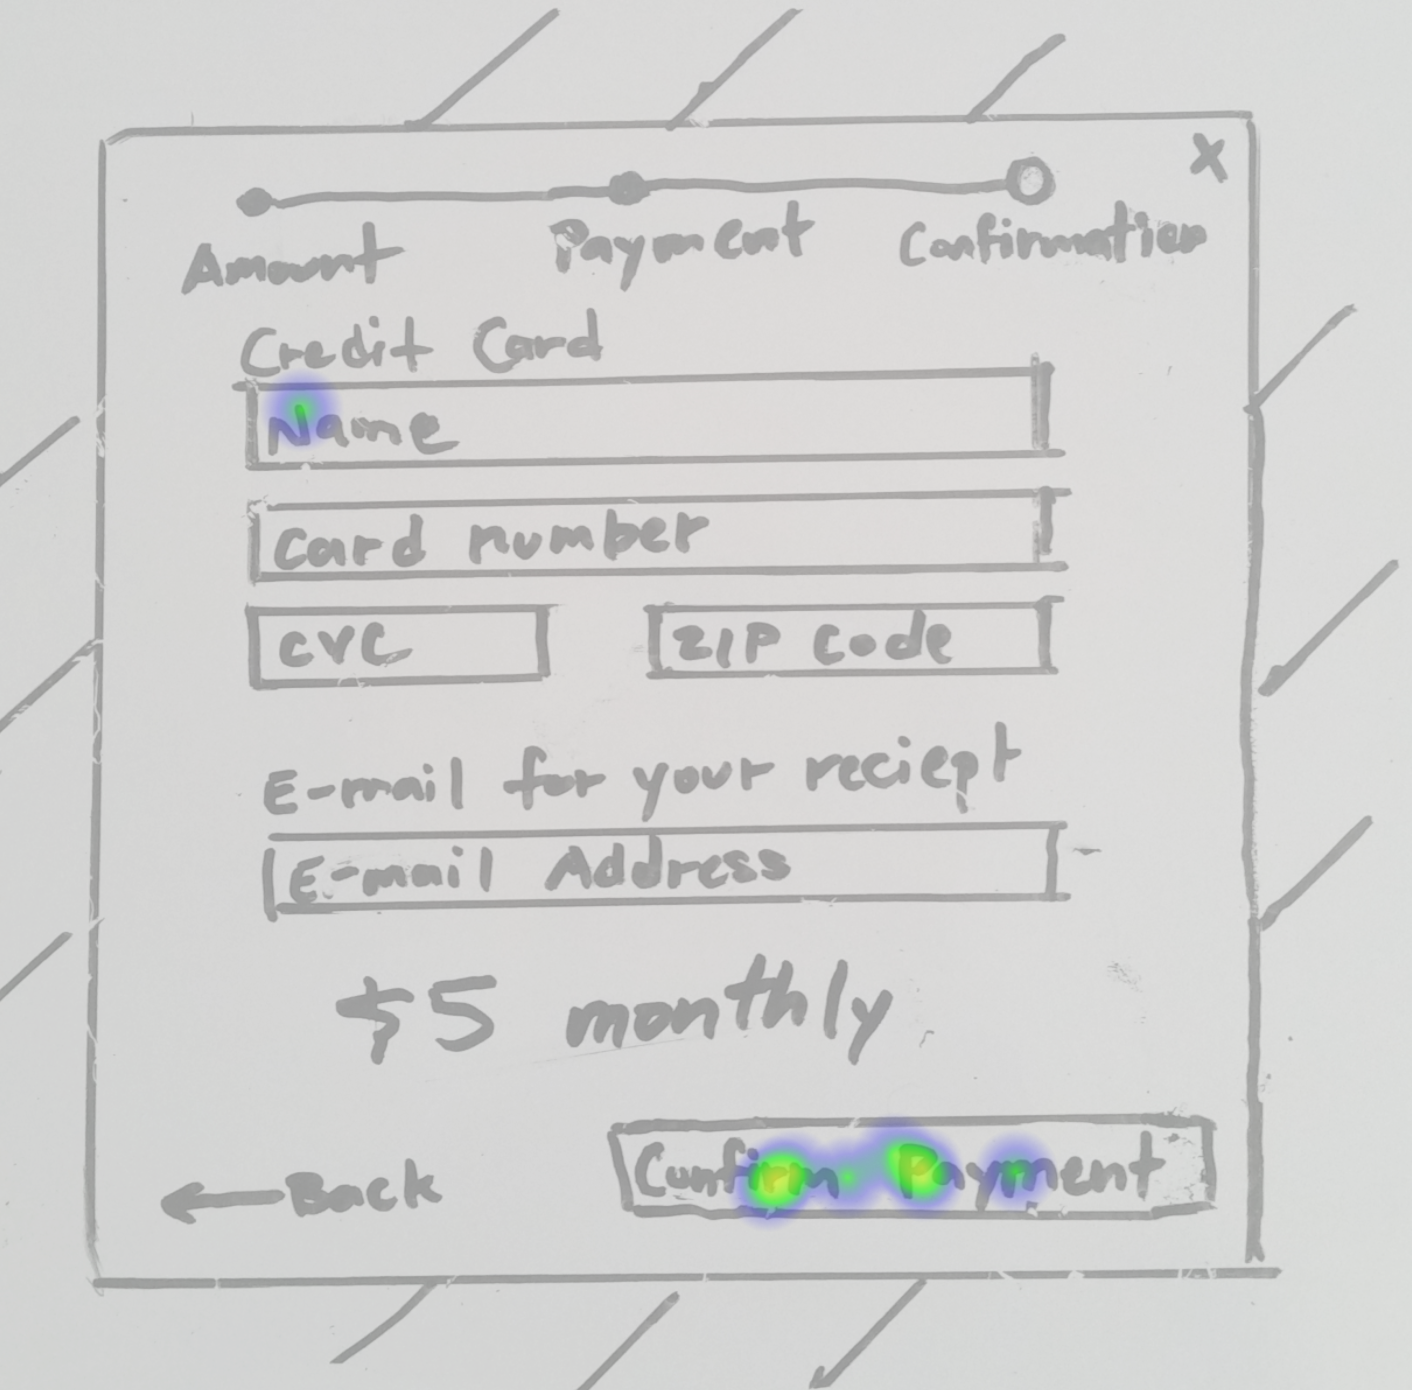 X
Amount Payment Confirmation
Credit Card
Name
Card number
CVC ZIP Code
E-mail for your reciept
E-mail Address
$5 monthly
← Back Confirm Payment